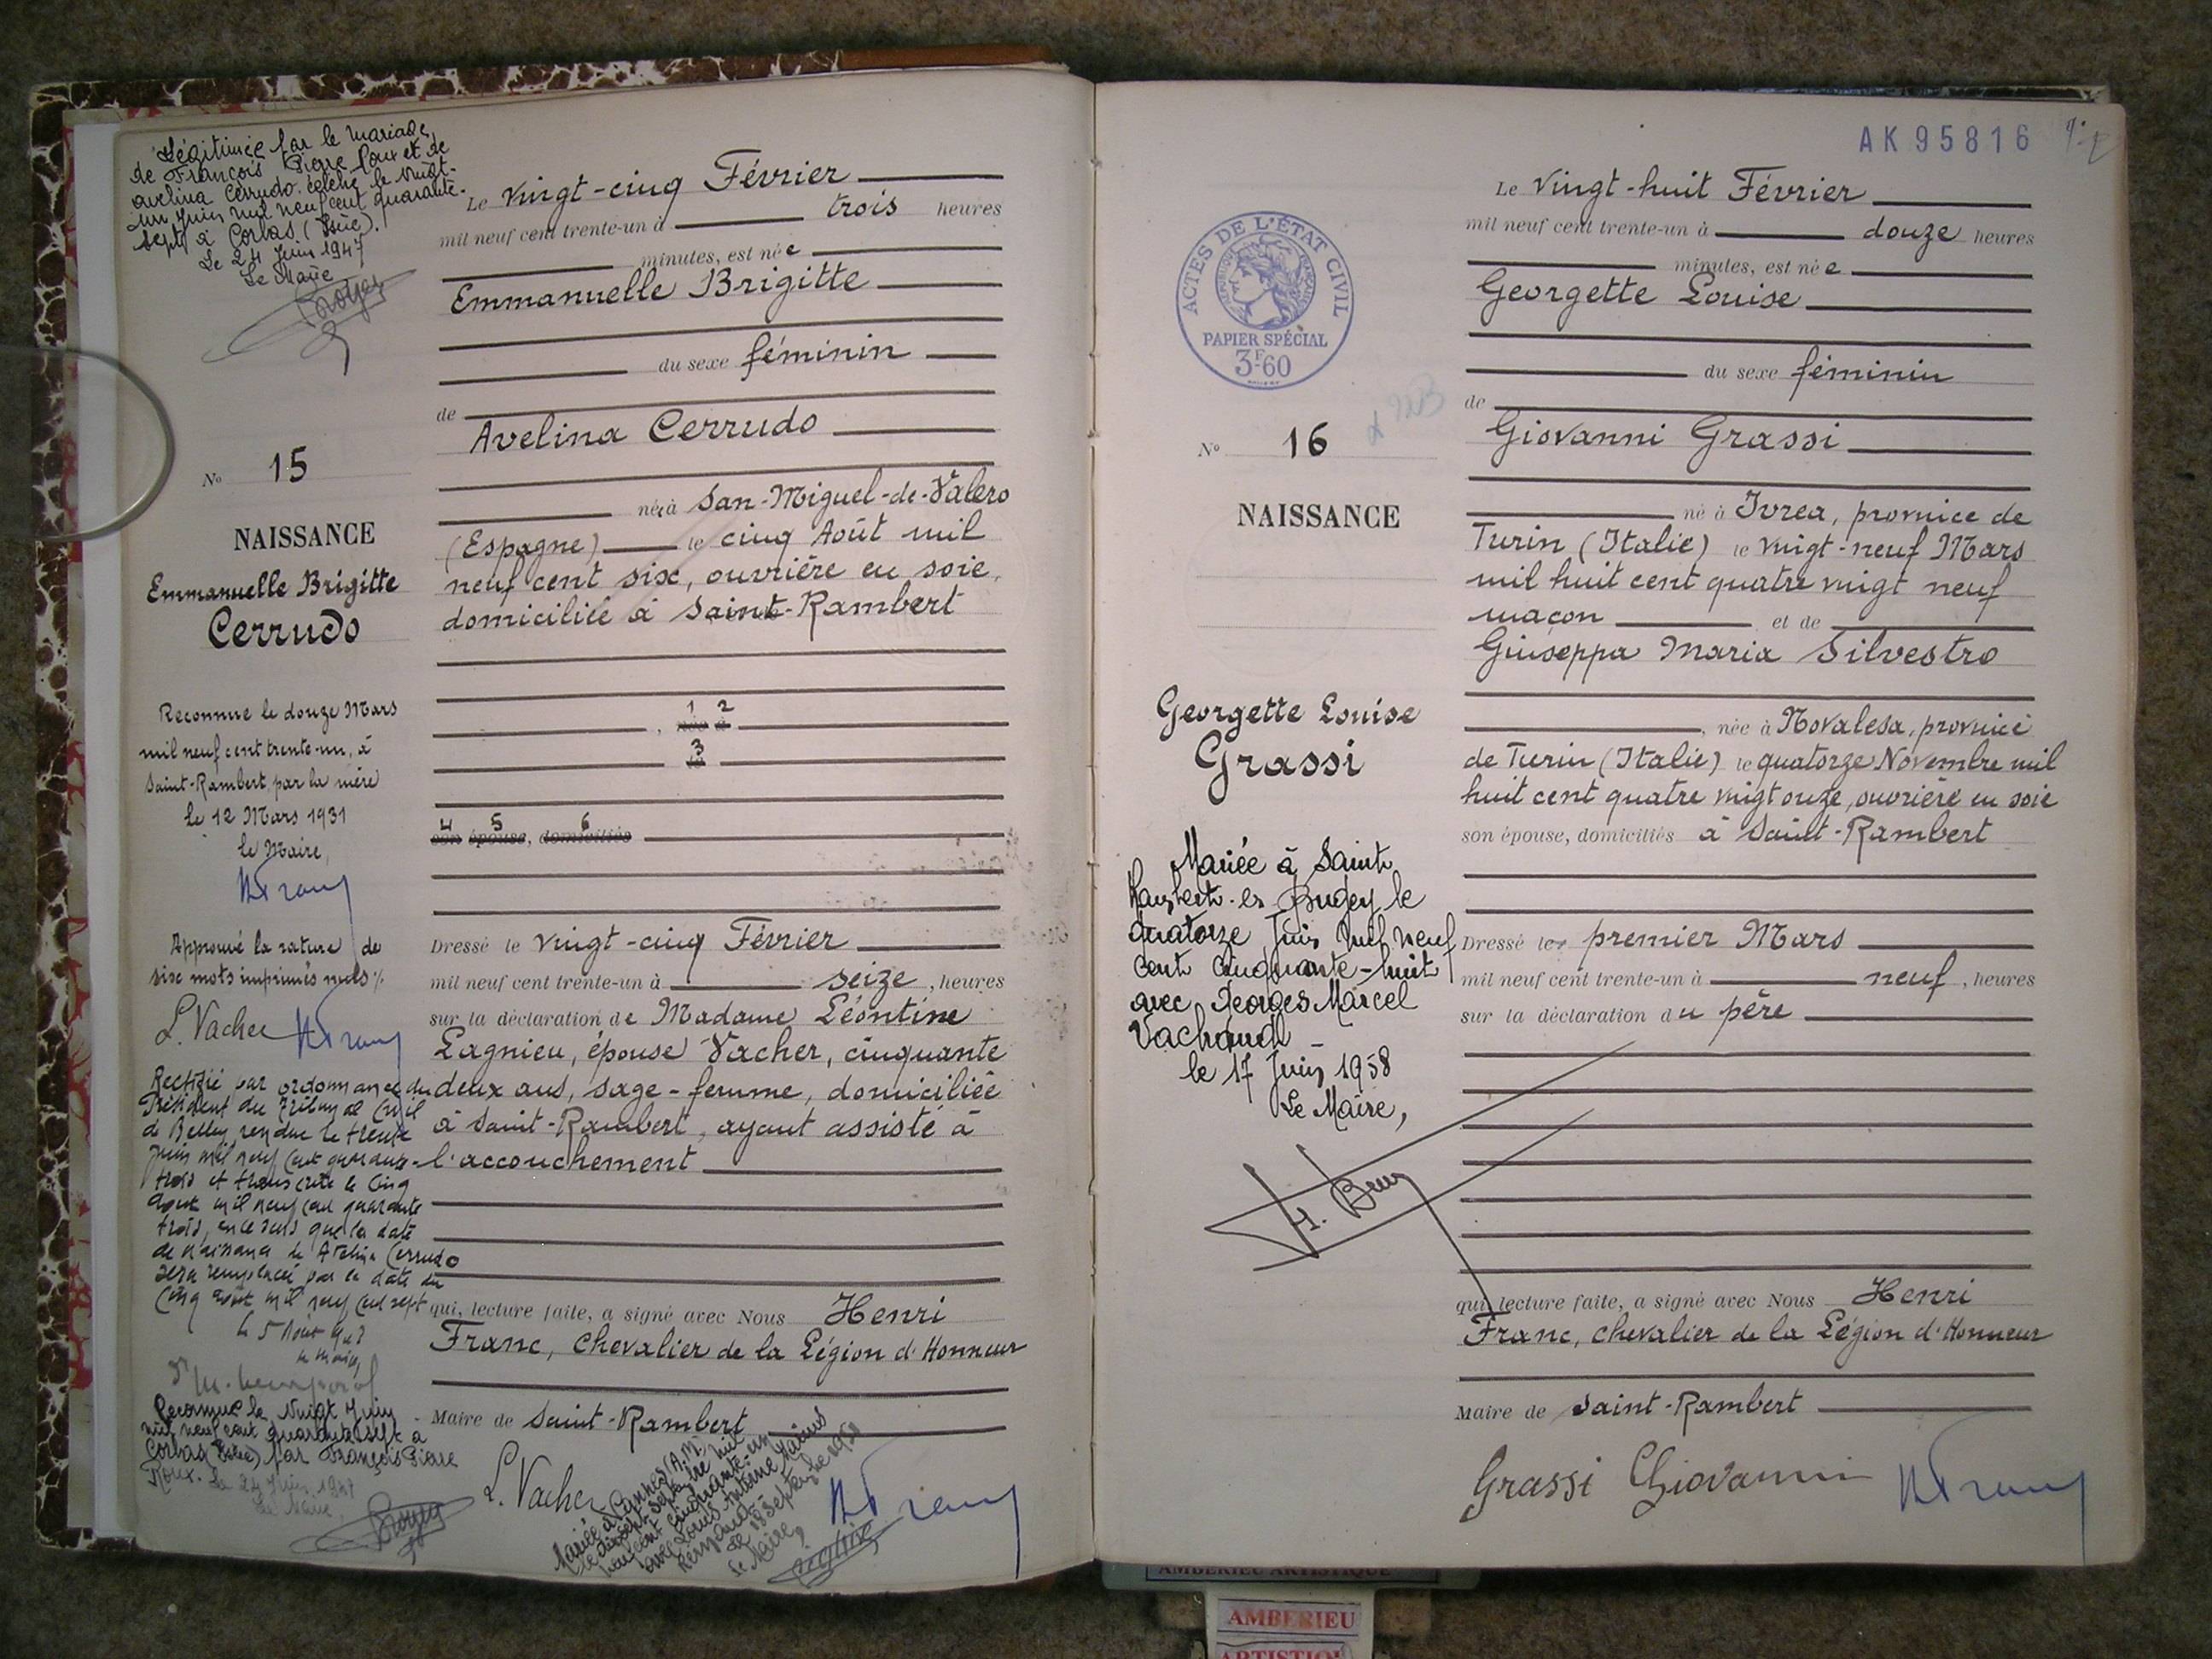 Légitimée par le mariage
de François Pierre Roux et de
avelina Cerrudo célébré le vingt-
un Juin mil neuf cent quarante-
sept à Corbas (Isère).
Le 24 Juin 1947
Le Maire
N° 15
NAISSANCE
Emmanuelle Brigitte
Cerrudo
Reconnue le douze Mars
mil neuf cent trente-un, à
Saint-Rambert, par la mère
le 12 Mars 1931
le Maire,
HFranc
Approuvé la rature de
six mots imprimés nuls %
L. Vacher HFranc
Rectifié par ordonnance du
Président du Tribunal Civil
de Belley rendue le trente
juin mil neuf cent quarante-
trois et transcrite le cinq
août mil neuf cent quarante
trois, en ce sens que la date
de naissance de Avelina Cerrudo
sera remplacée par la date du
cinq août mil neuf cent sept
le 5 Août 1943
le maire,
Reconnue le Vingt Juin
mil neuf cent quarante sept à
Corbas (Isère) par François Pierre
Roux. Le 24 Juin 1947
Le Maire,
Le vingt-cinq Février
mil neuf cent trente-un à trois heures
minutes, est née
Emmanuelle Brigitte
du sexe féminin
de
Avelina Cerrudo
née à San-Miguel-de-Valero
(Espagne) le cinq Août mil
neuf cent six, ouvrière en soie,
domiciliée à Saint-Rambert
1 2
, née à
3
le
4 5 6
son épouse, domiciliés
Dressé le vingt-cinq Février
mil neuf cent trente-un à seize, heures
sur la déclaration de Madame Léontine
Lagnieu, épouse Vacher, cinquante
deux ans, sage-femme, domiciliée
à Saint-Rambert, ayant assisté à
l'accouchement
qui, lecture faite, a signé avec Nous Henri
Franc, Chevalier de la Légion d'Honneur
Maire de Saint-Rambert
L. Vacher HFranc
Mariée à Cannes (A.M.)
le dix sept septembre mil
neuf cent cinquante-un
avec Louis Antoine Marius
le 18 Septembre 1951
Le Maire,
AK 95816
ACTES DE L'ÉTAT CIVIL
RÉPUBLIQUE FRANÇAISE
PAPIER SPÉCIAL
3F60
N° 16
NAISSANCE
Georgette Louise
Grassi
Mariée à Saint
Rambert-en-Bugey le
quatorze Juin mil neuf
cent cinquante-huit
avec Georges Marcel
Vachaudt
le 17 Juin 1958
Le Maire,
Le vingt-huit Février
mil neuf cent trente-un à douze heures
minutes, est née
Georgette Louise
du sexe féminin
de
Giovanni Grassi
né à Ivrea, province de
Turin (Italie) le vingt-neuf Mars
mil huit cent quatre vingt neuf
maçon et de
Giuseppa Maria Silvestro
, née à Novalesa, province
de Turin (Italie) le quatorze Novembre mil
huit cent quatre vingt onze, ouvrière en soie
son épouse, domiciliés à Saint-Rambert
Dressé le premier Mars
mil neuf cent trente-un à neuf, heures
sur la déclaration du père
qui, lecture faite, a signé avec Nous Henri
Franc, Chevalier de la Légion d'Honneur
Maire de Saint-Rambert
Grassi Giovanni HFranc
AMBERIEU ARTISTIQUE
AMBERIEU